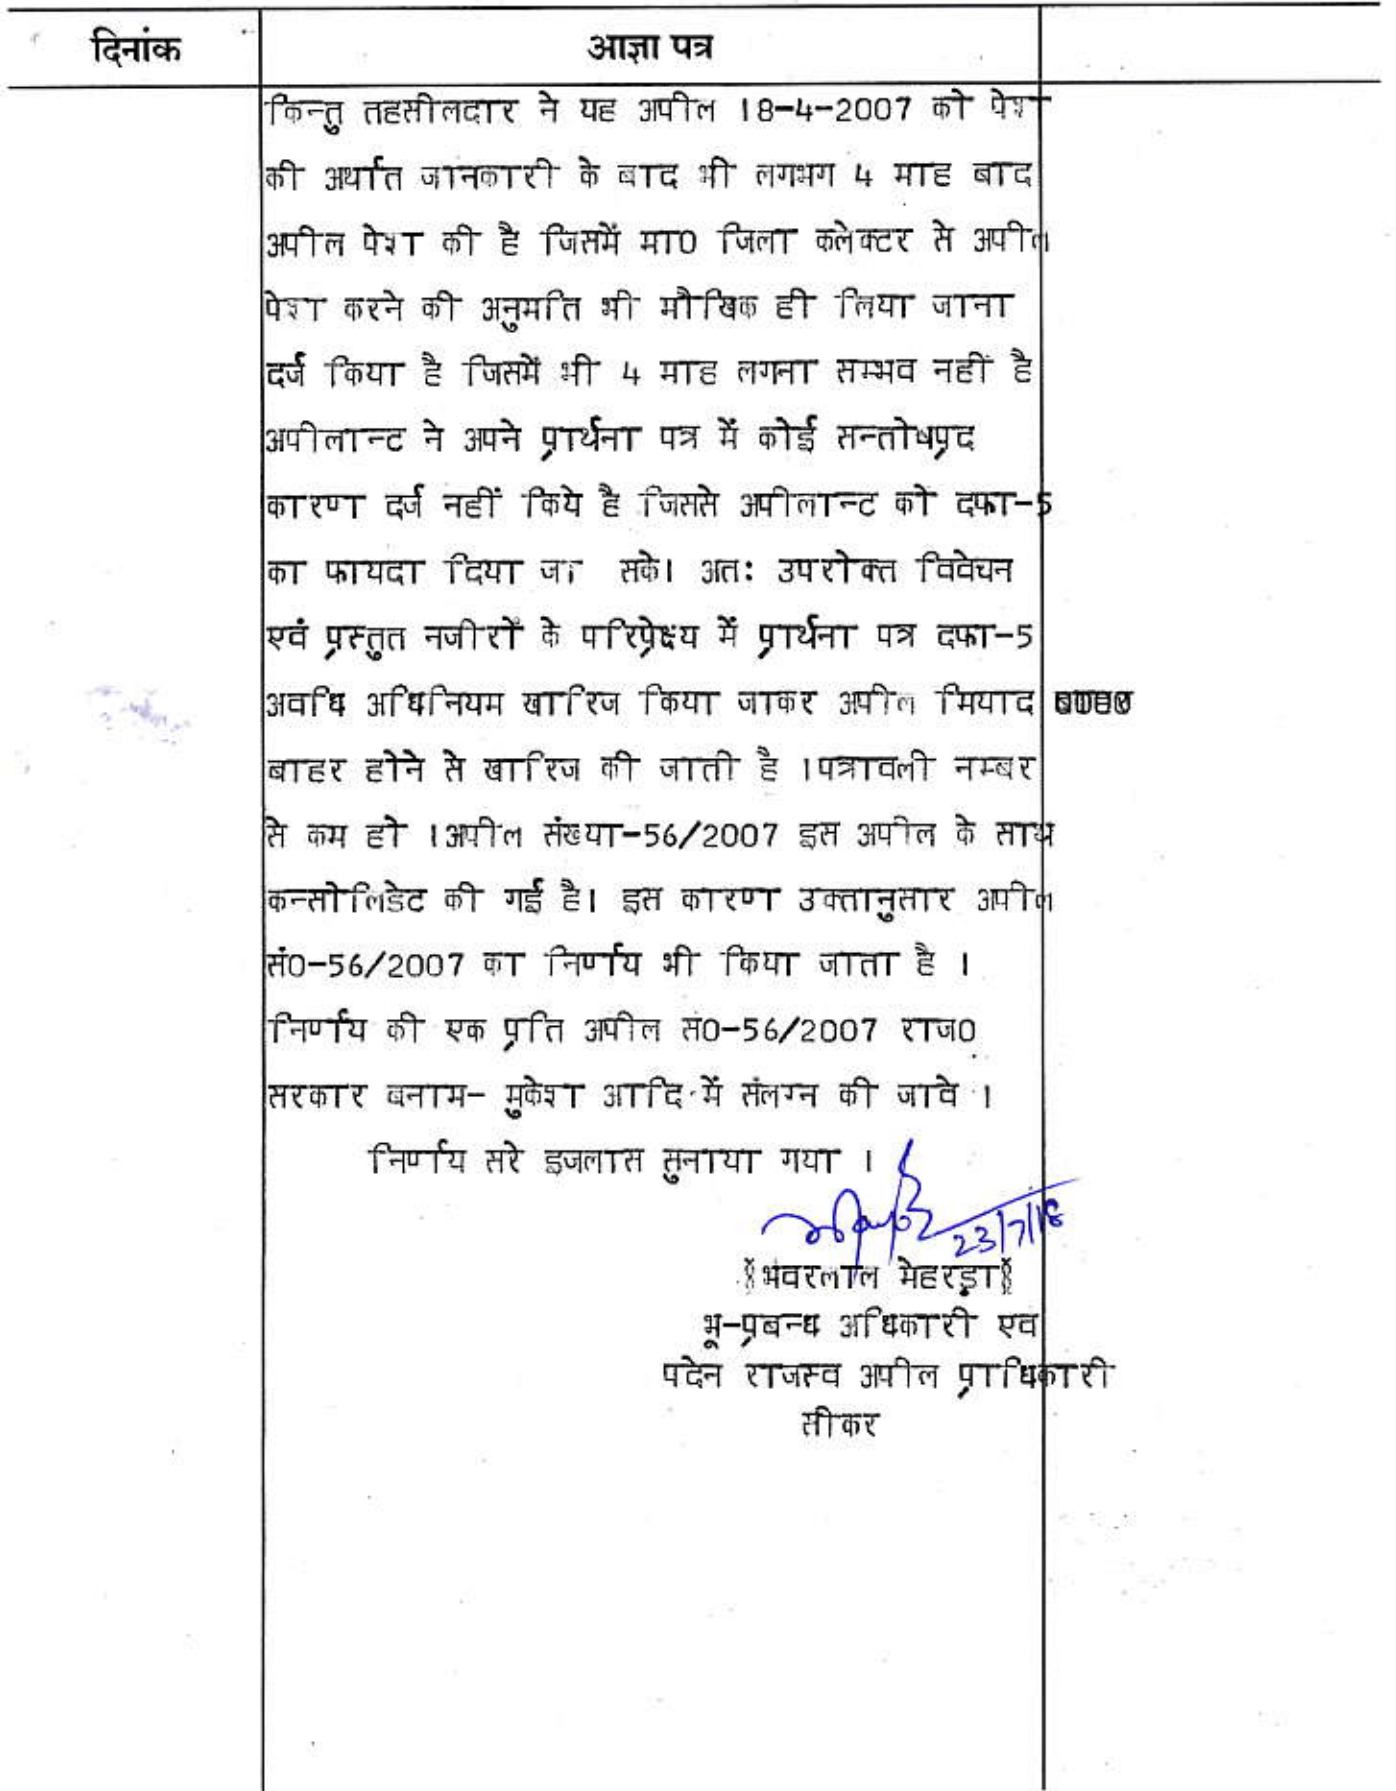 दिनांक आज्ञा पत्र
किन्तु तहसीलदार ने यह अपील 18-4-2007 को पेश
की अर्थात जानकारी के बाद भी लगभग 4 माह बाद
अपील पेश की है जिसमें मा0 जिला कलेक्टर से अपील
पेश करने की अनुमति भी मौखिक ही लिया जाना
दर्ज किया है जिसमें भी 4 माह लगना सम्भव नहीं है
अपीलान्ट ने अपने प्रार्थना पत्र में कोई सन्तोषप्रद
कारण दर्ज नहीं किये है जिससे अपीलान्ट को दफा-5
का फायदा दिया जा सके। अतः उपरोक्त विवेचन
एवं प्रस्तुत नजीरों के परिप्रेक्ष्य में प्रार्थना पत्र दफा-5
अवधि अधिनियम खारिज किया जाकर अपील मियाद
बाहर होने से खारिज की जाती है ।पत्रावली नम्बर
से कम हो ।अपील संख्या-56/2007 इस अपील के साथ
कन्सोलिडेट की गई है। इस कारण उक्तानुसार अपील
सं0-56/2007 का निर्णय भी किया जाता है ।
निर्णय की एक प्रति अपील सं0-56/2007 राज0
सरकार बनाम- मुकेश आदि में संलग्न की जावे ।
निर्णय सरे इजलास सुनाया गया ।
23/7/18
भंवरलाल मेहरड़ा
भू-प्रबन्ध अधिकारी एवं
पदेन राजस्व अपील प्राधिकारी
सीकर